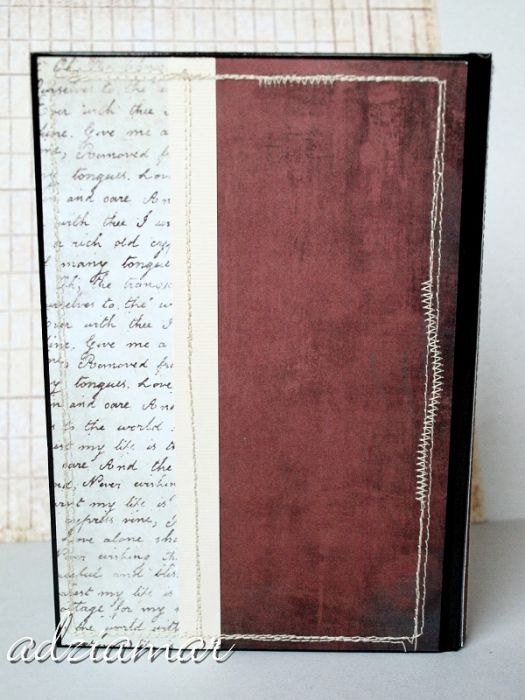 ourselves to the
over with thee
ine. Give me a
Removed fr
tongues. Love
n and care An
with thee I w
a rich old cypr
many tongue
the
urselves to the w
over with thee I
ine. Give me a
Removed fro
tongues. Love
n and care And
s to the world
est my life is t
care And the
Never wishin
urst my life is
empress vine, I
love alone sha
Never wishing th
and bles
rest my life is
ottage for my s
the world with
adziamar